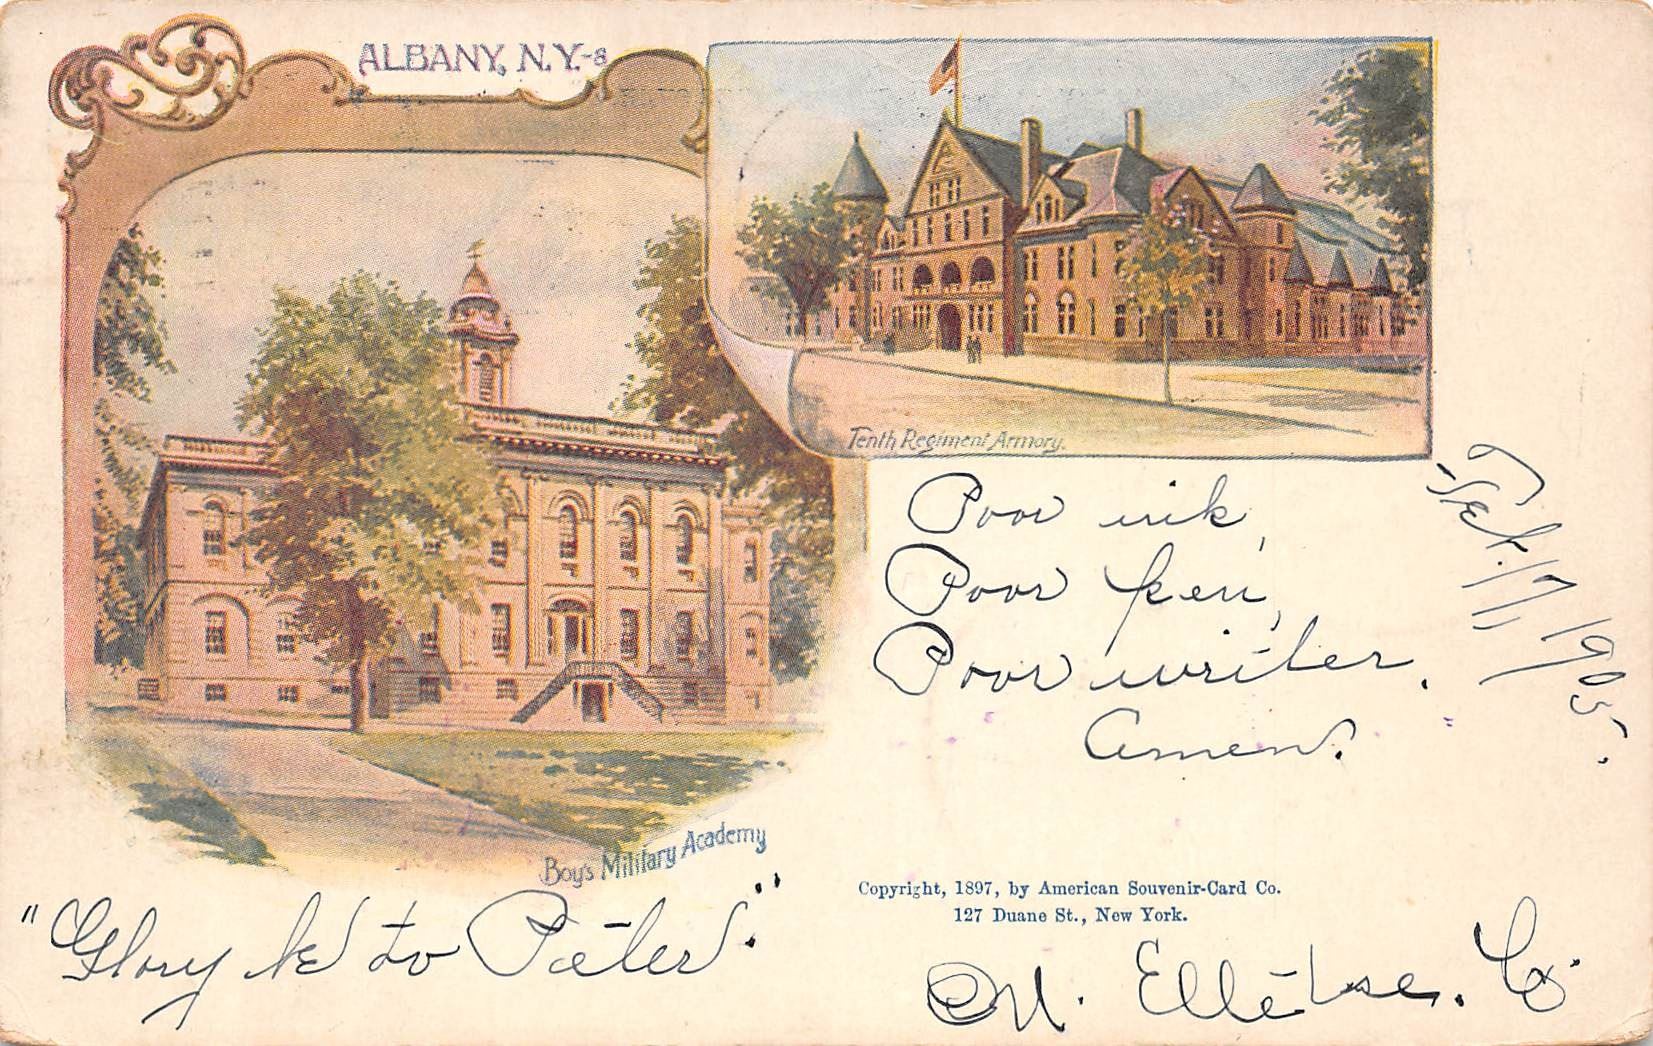 ALBANY, N.Y.-8
Tenth Regiment Armory.
Poor ink,
Poor pen,
Poor writer.
Amen.
Feb. 17, 1905.
Boy's Military Academy
Copyright, 1897, by American Souvenir-Card Co.
127 Duane St., New York.
"Glory be to Peter."
M.